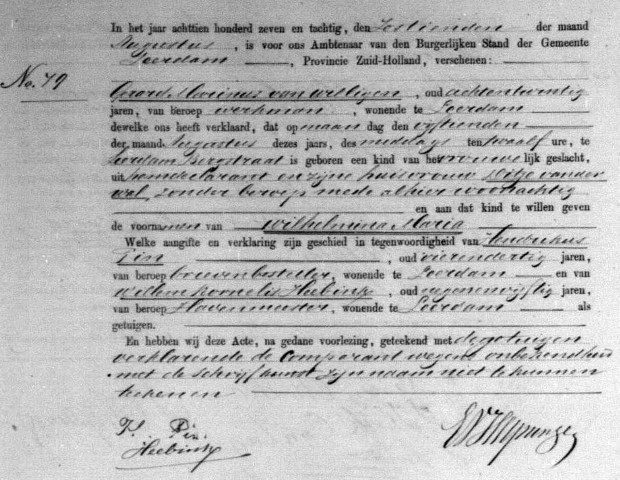 In het jaar achttien honderd zeven en tachtig, den Zestienden der maand
Augustus, is voor ons Ambtenaar van den Burgerlijken Stand der Gemeente
Leerdam, Provincie Zuid-Holland, verschenen:
No. 79
Gerard Marinus van Willigen, oud achtentwintig
jaren, van beroep werkman, wonende te Leerdam
dewelke ons heeft verklaard, dat op maandag den vijftienden
der maand Augustus dezes jaars, des middags ten twaalf ure, te
Leerdam Bergstraat is geboren een kind van het vrouwelijk geslacht,
uit hem declarant en zijne huisvrouw van der
Wal, zonder beroep mede alhier woonachtig
en aan dat kind te willen geven
de voornamen van Wilhelmina Maria
Welke aangifte en verklaring zijn geschied in tegenwoordigheid van Hendrikus
Pin, oud vierendertig jaren,
van beroep brievenbesteller, wonende te Leerdam en van
Willem Kornelis Heebink, oud negenenvijftig jaren,
van beroep Havenmeester, wonende te Leerdam als
getuigen.
En hebben wij deze Acte, na gedane voorlezing, geteekend met de getuigen
verklarende de Comparant wegens onbekendheid
met de schrijfkunst zijn naam niet te kunnen
teekenen
H. Pin
Heebink